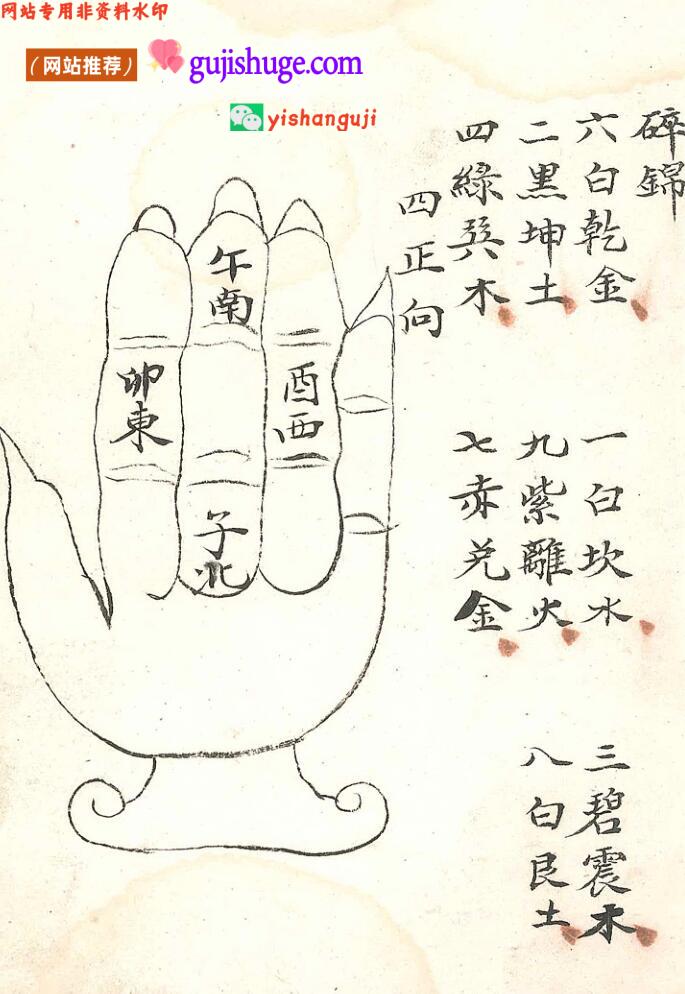 网站专用非资料水印
（网站推荐）
gujishuge.com
yishanguji
碎錦
六白乾金
一白坎水
三碧震木
二黑坤土
九紫離火
八白艮土
四綠巽木
七赤兌金
四正向
午南
卯東
酉西
子北